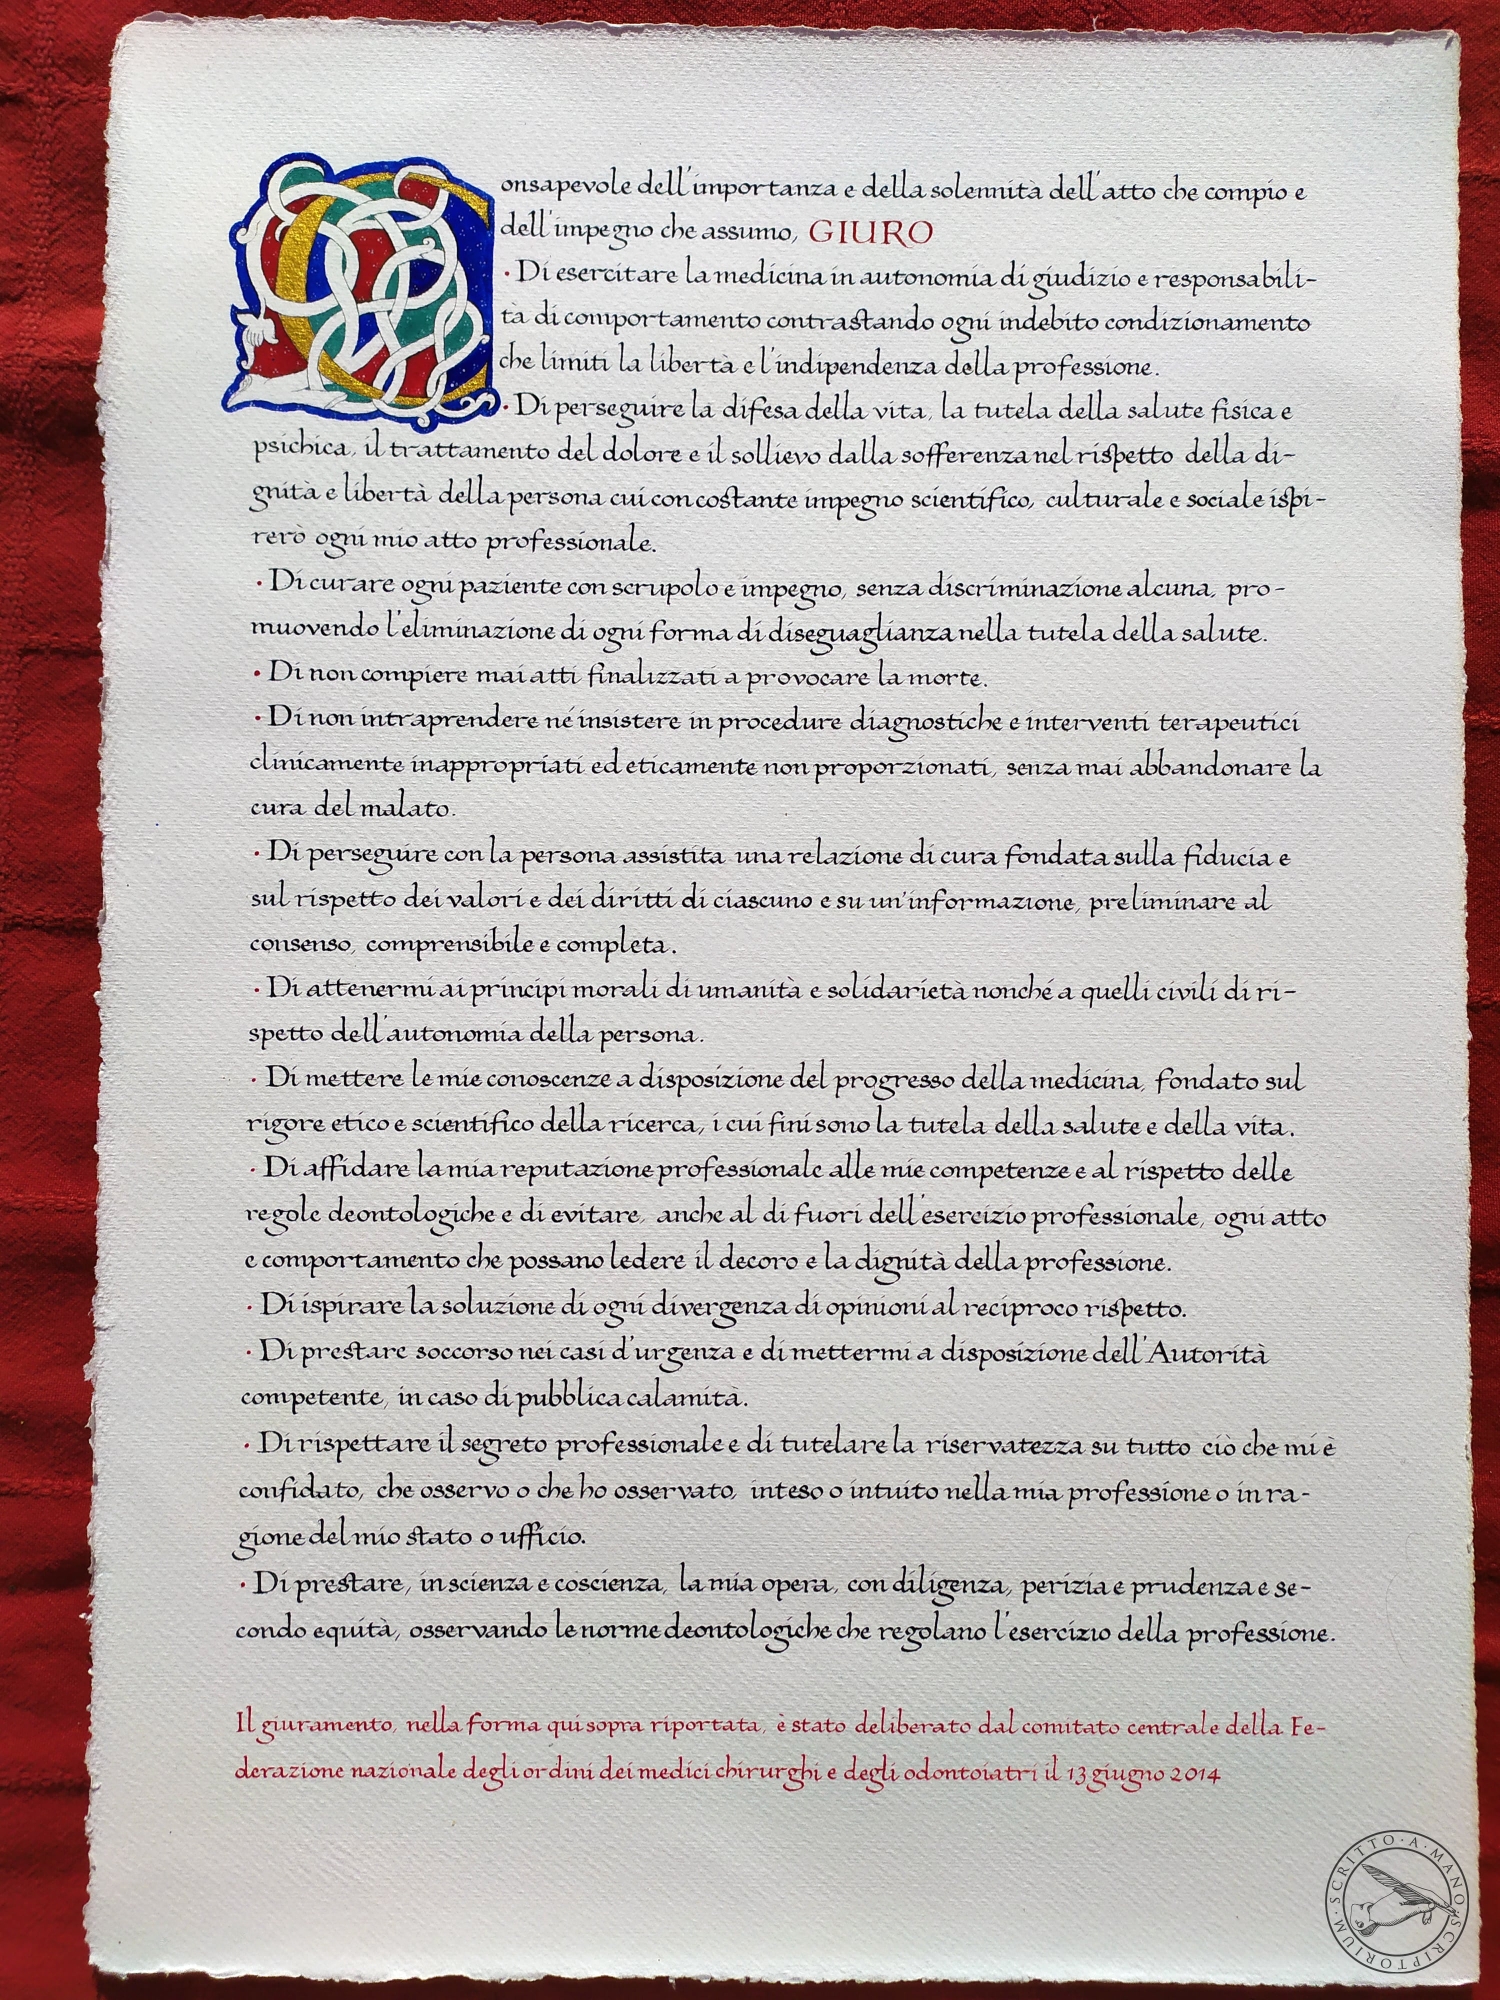 Consapevole dell'importanza e della solennità dell'atto che compio e
dell'impegno che assumo, GIURO
· Di esercitare la medicina in autonomia di giudizio e responsabili-
tà di comportamento contrastando ogni indebito condizionamento
che limiti la libertà e l'indipendenza della professione.
· Di perseguire la difesa della vita, la tutela della salute fisica e
psichica, il trattamento del dolore e il sollievo dalla sofferenza nel rispetto della di-
gnità e libertà della persona cui con costante impegno scientifico, culturale e sociale ispi-
rerò ogni mio atto professionale.
· Di curare ogni paziente con scrupolo e impegno, senza discriminazione alcuna, pro-
muovendo l'eliminazione di ogni forma di diseguaglianza nella tutela della salute.
· Di non compiere mai atti finalizzati a provocare la morte.
· Di non intraprendere né insistere in procedure diagnostiche e interventi terapeutici
clinicamente inappropriati ed eticamente non proporzionati, senza mai abbandonare la
cura del malato.
· Di perseguire con la persona assistita una relazione di cura fondata sulla fiducia e
sul rispetto dei valori e dei diritti di ciascuno e su un'informazione, preliminare al
consenso, comprensibile e completa.
· Di attenermi ai principi morali di umanità e solidarietà nonché a quelli civili di ri-
spetto dell'autonomia della persona.
· Di mettere le mie conoscenze a disposizione del progresso della medicina, fondato sul
rigore etico e scientifico della ricerca, i cui fini sono la tutela della salute e della vita.
· Di affidare la mia reputazione professionale alle mie competenze e al rispetto delle
regole deontologiche e di evitare, anche al di fuori dell'esercizio professionale, ogni atto
e comportamento che possano ledere il decoro e la dignità della professione.
· Di ispirare la soluzione di ogni divergenza di opinioni al reciproco rispetto.
· Di prestare soccorso nei casi d'urgenza e di mettermi a disposizione dell'Autorità
competente, in caso di pubblica calamità.
· Di rispettare il segreto professionale e di tutelare la riservatezza su tutto ciò che mi è
confidato, che osservo o che ho osservato, inteso o intuito nella mia professione o in ra-
gione del mio stato o ufficio.
· Di prestare, in scienza e coscienza, la mia opera, con diligenza, perizia e prudenza e se-
condo equità, osservando le norme deontologiche che regolano l'esercizio della professione.
Il giuramento, nella forma qui sopra riportata, è stato deliberato dal comitato centrale della Fe-
derazione nazionale degli ordini dei medici chirurghi e degli odontoiatri il 13 giugno 2014
SCRITTO · A · MANO · SCRIPTORIUM ·